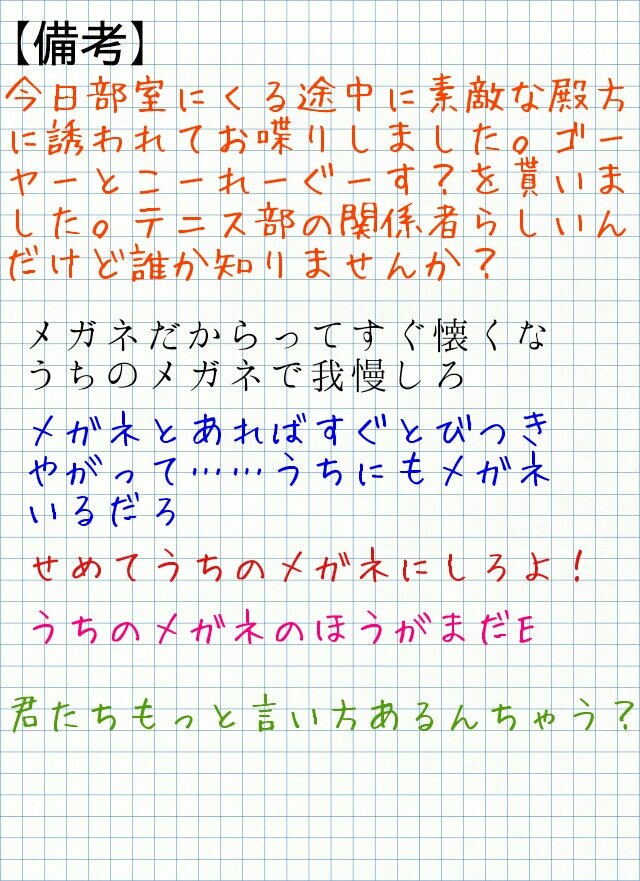 【備考】
今日部室にくる途中に素敵な殿方
に誘われてお喋りしました。ゴー
ヤーとこーれーぐーす?を貰いま
した。テニス部の関係者らしいん
だけど誰か知りませんか?
メガネだからってすぐ懐くな
うちのメガネで我慢しろ
メガネとあればすぐとびつき
やがって……うちにもメガネ
いるだろ
せめてうちのメガネにしろよ!
うちのメガネのほうがまだE
君たちもっと言い方あるんちゃう?